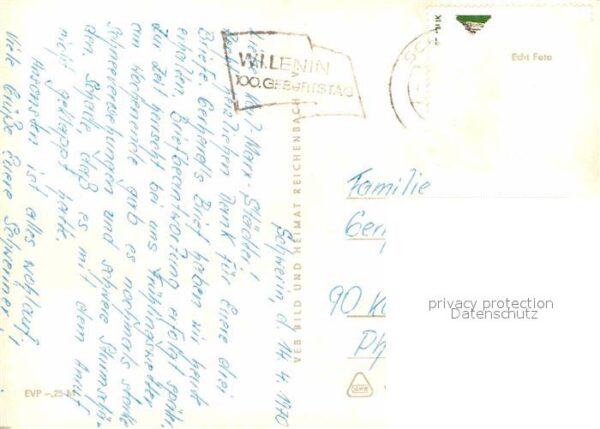 Schwerin, d. 14.4.1970
Liebe Karl-Marx-Städter!
Recht herzlichen Dank für Eure drei
Briefe. Gerhards Brief haben wir heut
erhalten. Briefbeantwortung erfolgt später.
Zur Zeit herrscht bei uns Frühlingswetter
am Wochenende gab es nochmals starke
Schneeverwehungen und schwere Sturmschä-
den. Schade, daß es mit dem Anruf
nicht geklappt hatte.
Ansonsten ist alles wohlauf,
Viele Grüße Eure Schweriner!
W.I. LENIN
100. GEBURTSTAG
Echt Foto
VEB BILD UND HEIMAT REICHENBACH
Familie
Ger
90 Ka
Ph
EVP -,25 M
privacy protection
Datenschutz